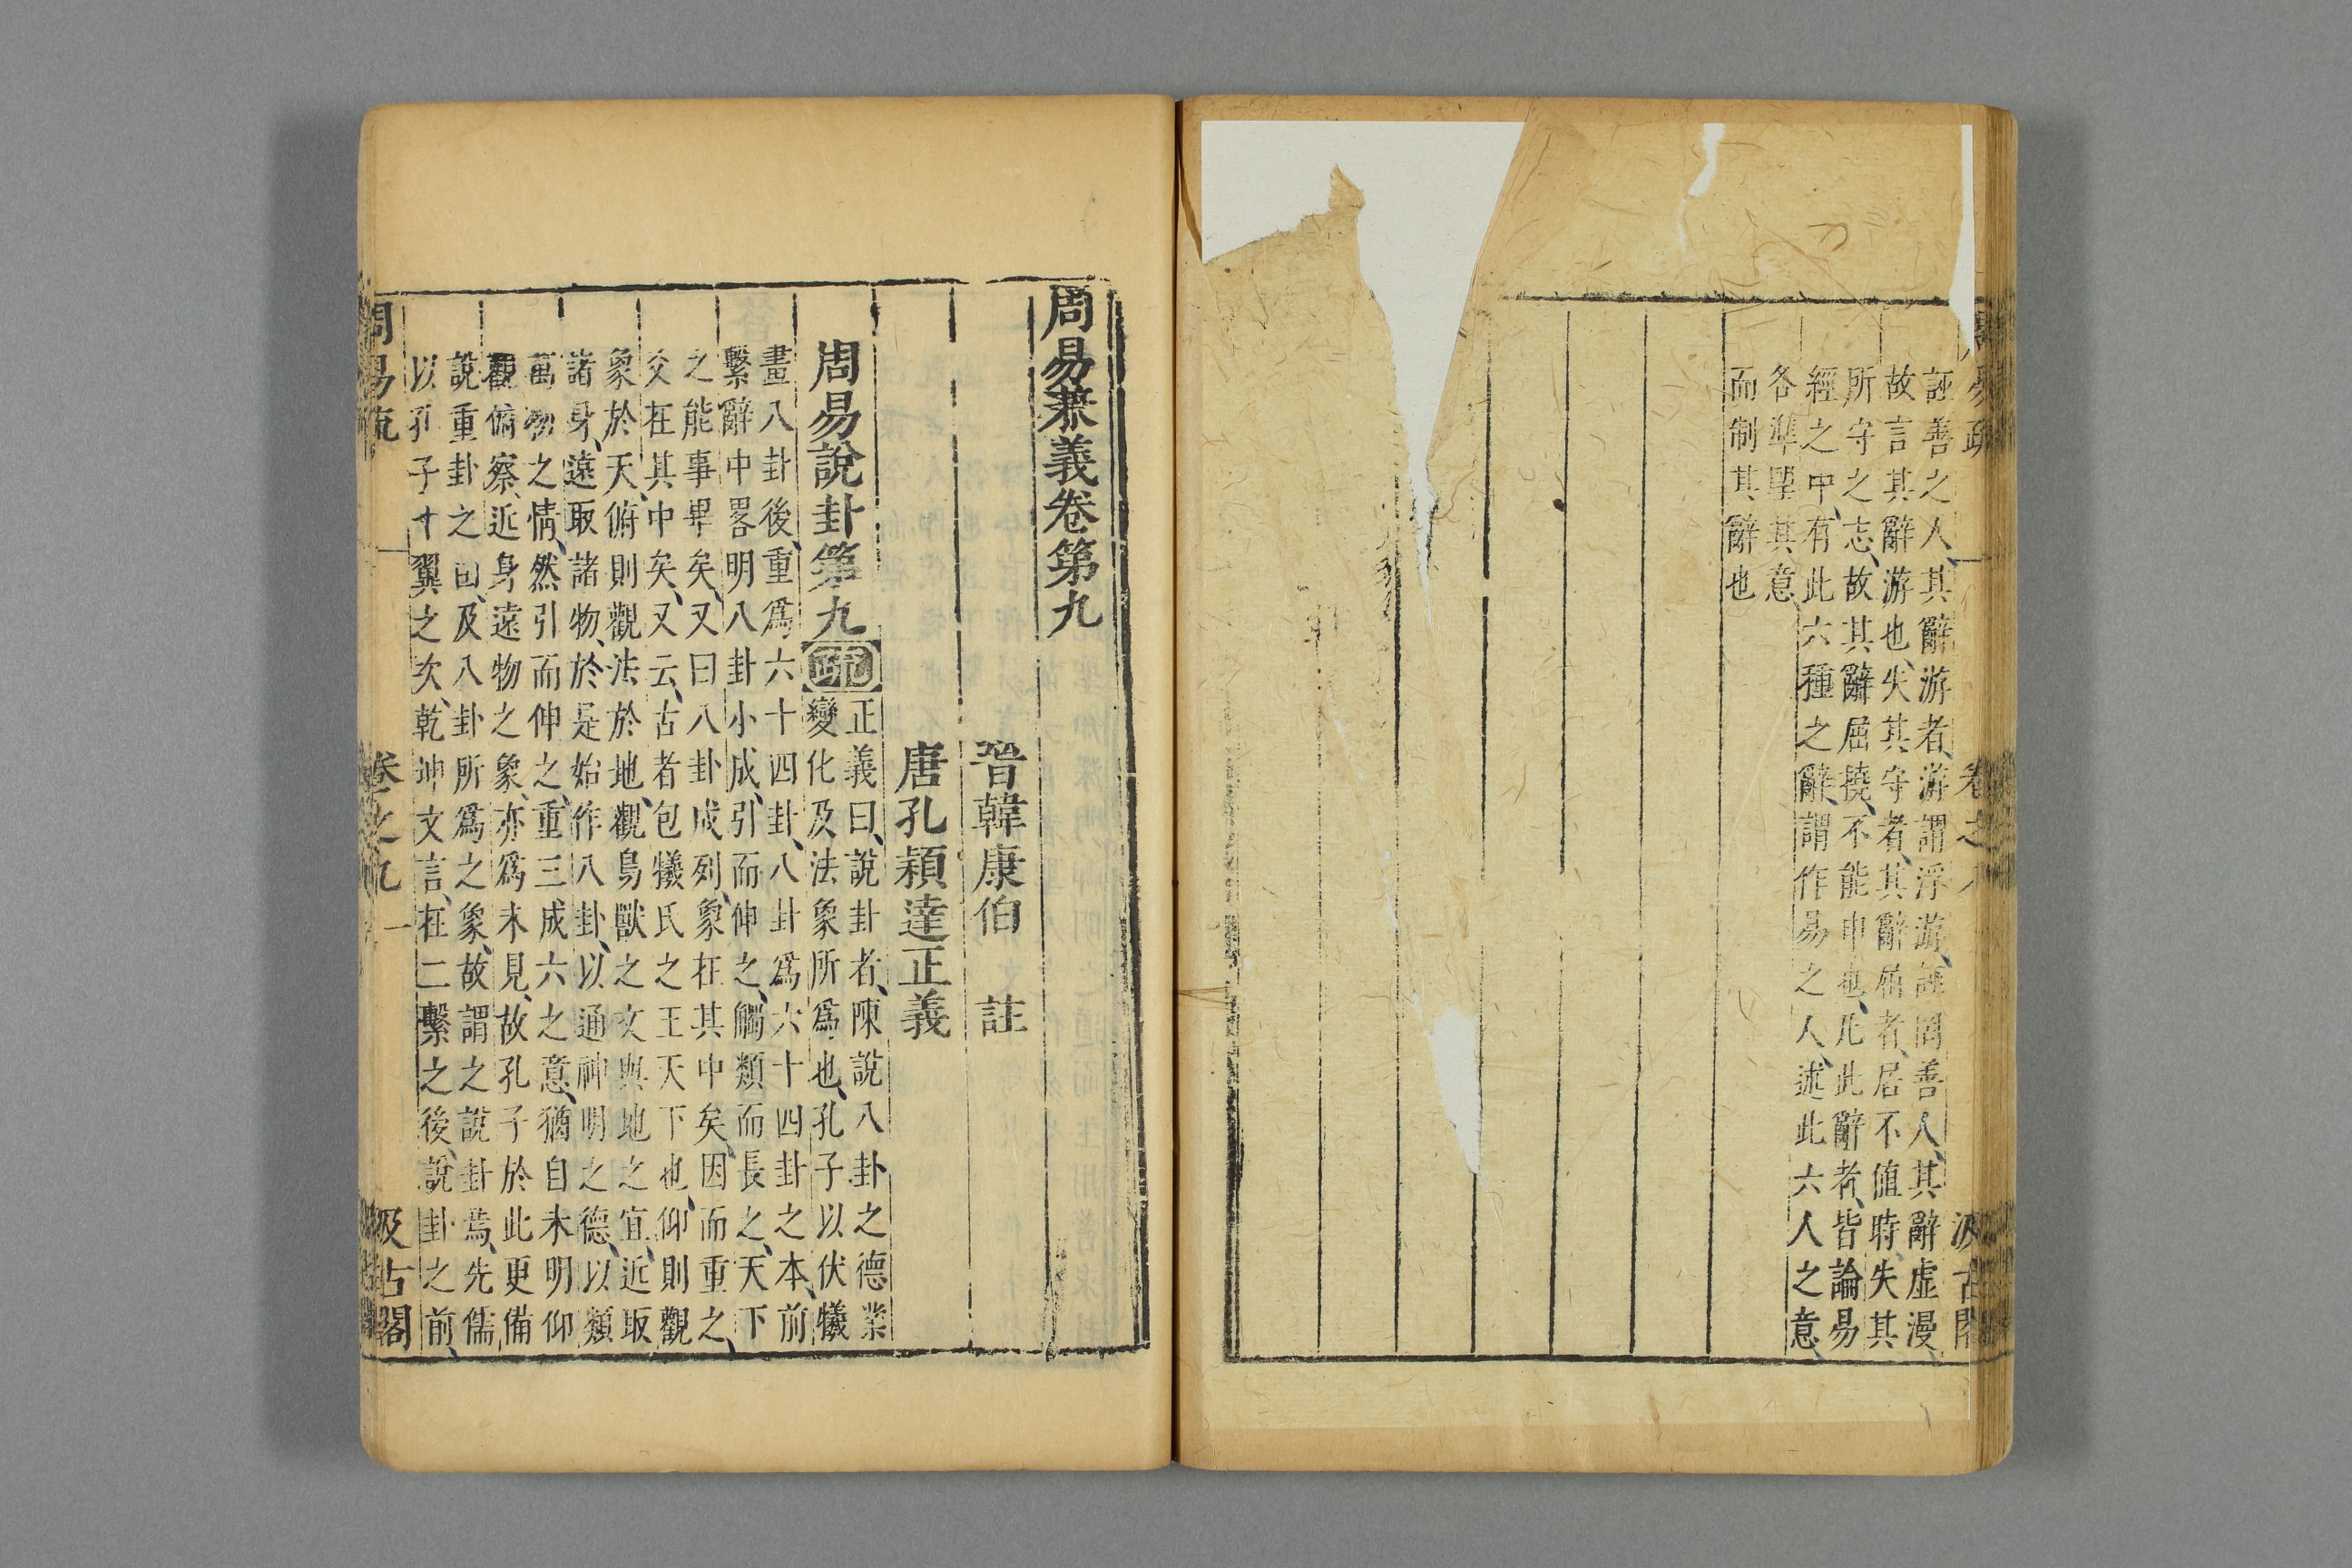 誣善之人其辭游者游謂浮游誣罔善人其辭虛漫
故言其辭游也失其守者其辭屈者居不值時失其
所守之志故其辭屈撓不能申也凡此辭者皆論易
經之中有此六種之辭謂作易之人述此六人之意
各準望其意
而制其辭也
周易兼義卷第九
晉韓康伯 註
唐孔穎達正義
周易說卦第九 疏
正義曰說卦者陳說八卦之德業
變化及法象所爲也孔子以伏犧
畫八卦後重爲六十四卦八卦爲六十四卦之本前
繫辭中畧明八卦小成引而伸之觸類而長之天下
之能事畢矣又曰八卦成列象在其中矣因而重之
爻在其中矣又云古者包犧氏之王天下也仰則觀
象於天俯則觀法於地觀鳥獸之文與地之宜近取
諸身遠取諸物於是始作八卦以通神明之德以類
萬物之情然引而伸之重三成六之意猶自未明仰
觀俯察近身遠物之象亦爲未見故孔子於此更備
說重卦之由及八卦所爲之象故謂之說卦焉先儒
以孔子十翼之次乾坤文言在二繫之後說卦之前
周易疏 卷之九 一 汲古閣